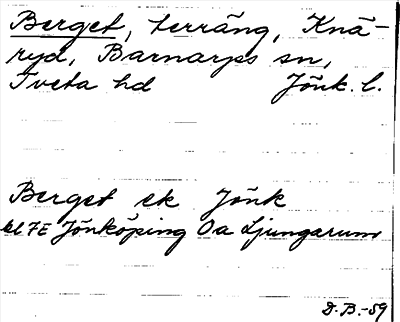 Berget, terräng, Knä-
ryd, Barnarps sn,
Tveta hd Jönk. l.
Berget ek Jönk
bl 7E Jönköping Oa Ljungarum
D.B.-59